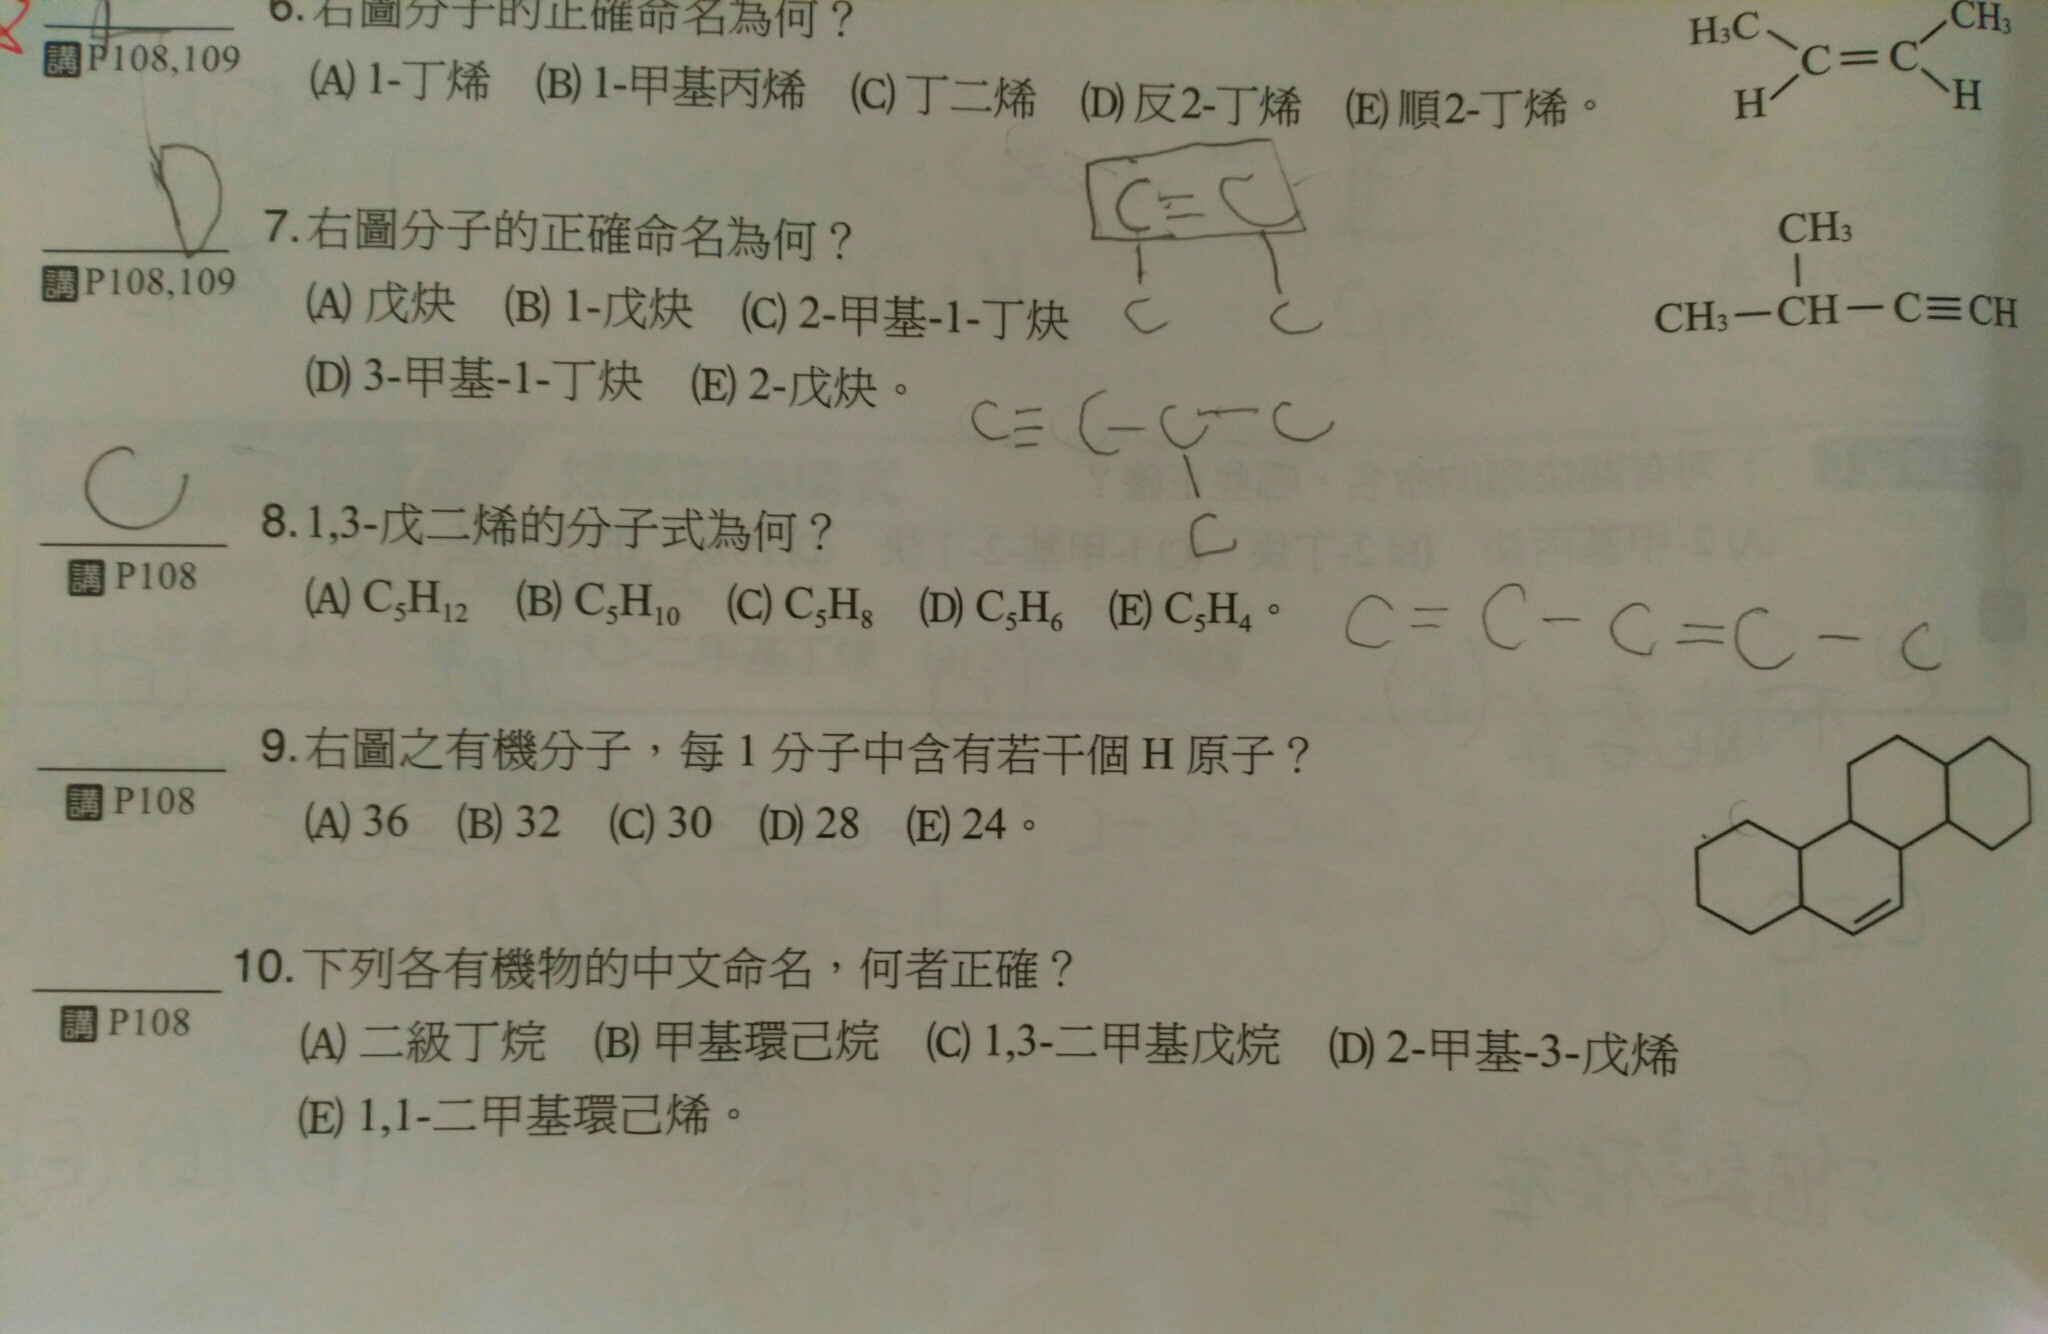 6. 右圖分子的正確命名為何？
講 P108,109
(A) 1-丁烯 (B) 1-甲基丙烯 (C) 丁二烯 (D) 反2-丁烯 (E) 順2-丁烯。
H₃C CH₃
C=C
H H
D
7. 右圖分子的正確命名為何？
講 P108,109
(A) 戊炔 (B) 1-戊炔 (C) 2-甲基-1-丁炔
(D) 3-甲基-1-丁炔 (E) 2-戊炔。
C≡C
C C
CH₃
CH₃－CH－C≡CH
C≡C－C－C
C
C
8. 1,3-戊二烯的分子式為何？
講 P108
(A) C₅H₁₂ (B) C₅H₁₀ (C) C₅H₈ (D) C₅H₆ (E) C₅H₄。
C=C－C=C－C
9. 右圖之有機分子，每 1 分子中含有若干個 H 原子？
講 P108
(A) 36 (B) 32 (C) 30 (D) 28 (E) 24。
10. 下列各有機物的中文命名，何者正確？
講 P108
(A) 二級丁烷 (B) 甲基環己烷 (C) 1,3-二甲基戊烷 (D) 2-甲基-3-戊烯
(E) 1,1-二甲基環己烯。